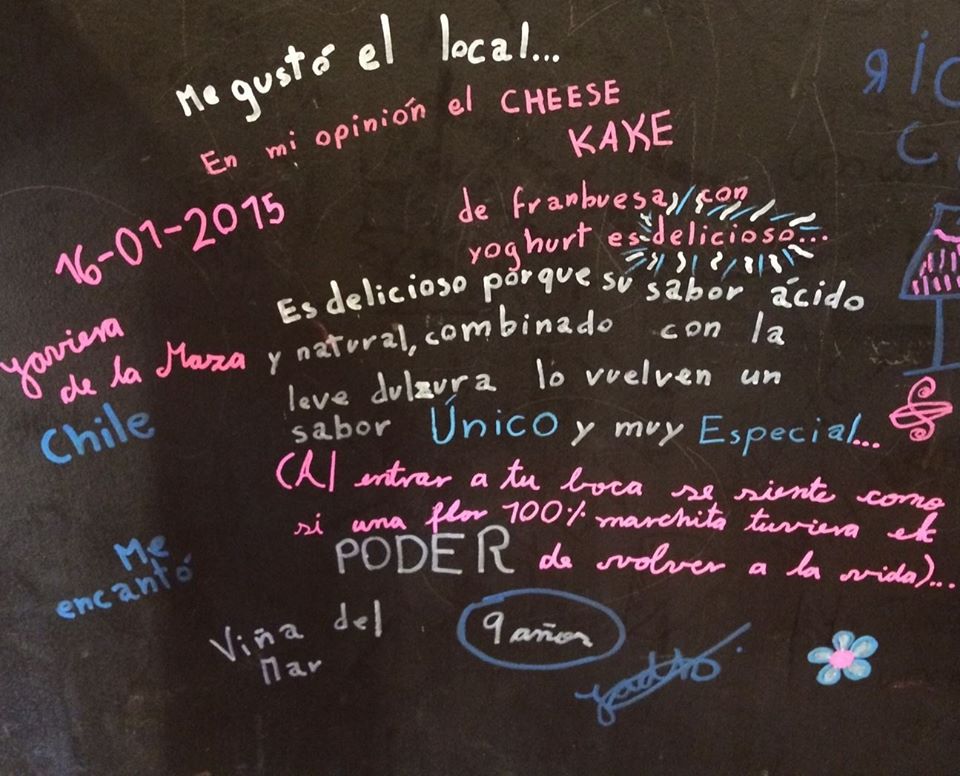 Me gustó el local...
En mi opinión el CHEESE
KAKE
de franbuesa, con
yoghurt es delicioso...
16-01-2015
Es delicioso porque su sabor ácido
y natural, combinado con la
leve dulzura lo vuelven un
sabor Único y muy Especial...
(Al entrar a tu boca se siente como
si una flor 100% marchita tuviera el
PODER de volver a la vida)...
Javiera
de la Maza
Chile
Me
encantó
Viña del
Mar
9 años